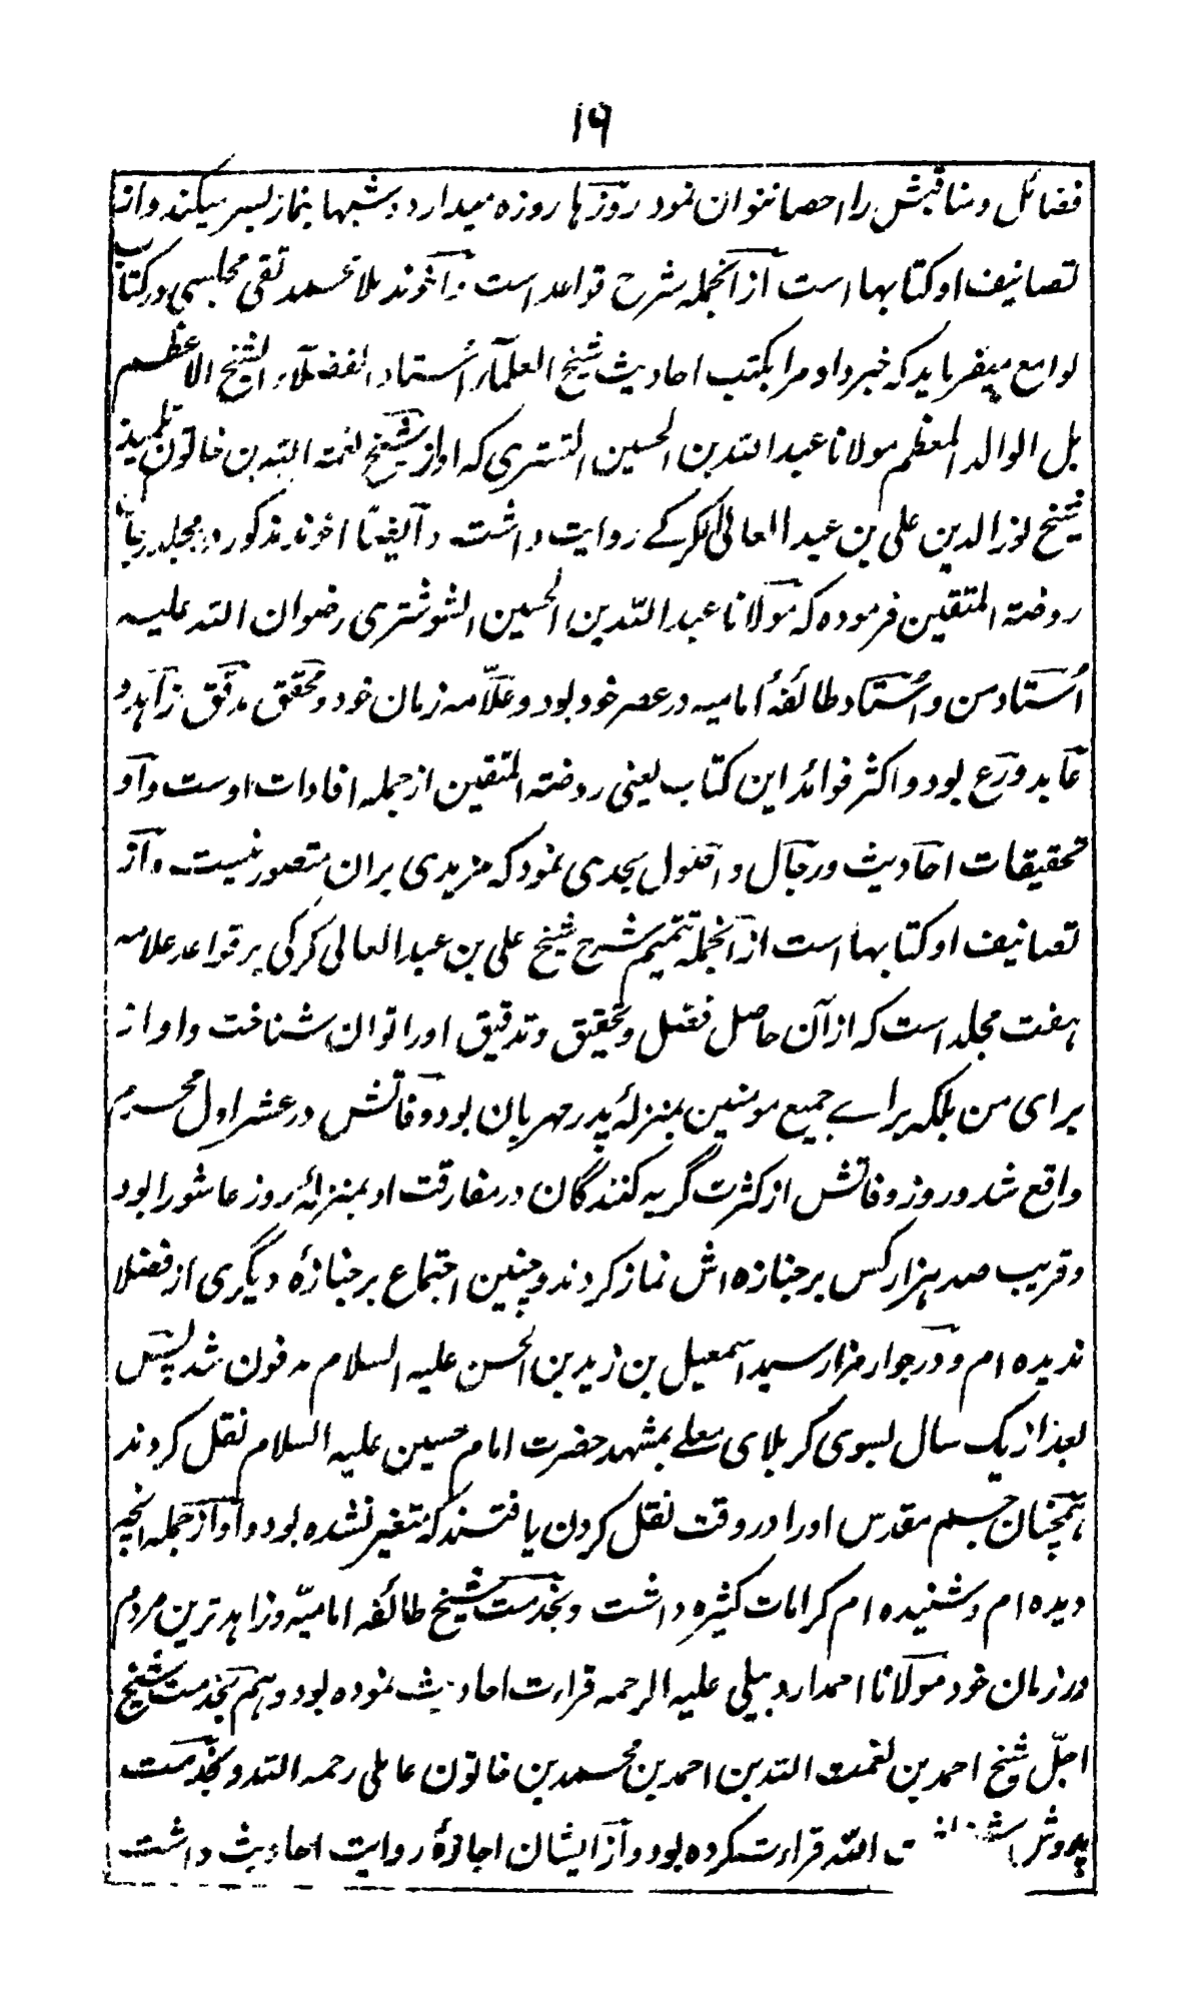 ۱۹
فضائل و مناقبش را احصا نتوان نمود روزها روزه میدارد و شبها بنماز بسر میکند و از
تصانیف او کتابها است از آنجمله شرح قواعد است و آخوند ملا محمد تقی مجلسی در کتاب
لوامع میفرماید که خبر داد مرا بکتب احادیث شیخ العلماء استاد الفضلاء الشیخ الاعظم
بل الوالد المعظم مولانا عبد الله بن الحسین التستری که او از شیخ نعمة الله بن خاتون تلمیذ
شیخ نور الدین علی بن عبد العالی الکرکے روایت داشت و ایضا اخوند مذکور در مجلد
روضة المتقین فرموده که مولانا عبد الله بن الحسین الشوشتری رضوان الله علیه
استاد من و استاد طائفهٔ امامیه در عصر خود بود و علّامه زمان خود و محقق مدقق زاهد و
عابد ورع بود و اکثر فوائد این کتاب یعنی روضة المتقین از جمله افادات اوست و او
تحقیقات احادیث و رجال و اصول بحدی نمود که مزیدی بران متصور نیست و از
تصانیف او کتابها است از آنجمله تتمیم شرح شیخ علی بن عبد العالی کرکی بر قواعد علامه
هفت مجلد است که از آن حاصل فضل و تحقیق و تدقیق او را توان شناخت و او از
برای من بلکه براے جمیع مومنین بمنزلهٔ پدر مهربان بود و وفاتش در عشر اول محرم
واقع شد و روز وفاتش از کثرت گریه کنندگان در مفارقت او بمنزلهٔ روز عاشورا بود
و قریب صد هزار کس بر جنازه اش نماز کردند و چنین اجتماع بر جنازهٔ دیگری از فضلا
ندیده ام و در جوار مزار سید اسمعیل بن زید بن الحسن علیه السلام مدفون شد پس
بعد از یک سال بسوی کربلای معلے بمشهد حضرت امام حسین علیه السلام نقل کردند
همچنان جسم مقدس او را در وقت نقل کردن یافتند که متغیر نشده بود و او از جمله انچه
دیده ام و شنیده ام کرامات کثیره داشت و بخدمت شیخ طائفه امامیّه و زاهد ترین مردم
در زمان خود مولانا احمد اردبیلی علیه الرحمه قراءت احادیث نموده بود و هم بخدمت شیخ
اجلّ شیخ احمد بن نعمت الله بن احمد بن محمد بن خاتون عاملی رحمه الله و بخدمت
پدرش الله قراءت کرده بود و از ایشان اجازهٔ روایت احادیث داشت